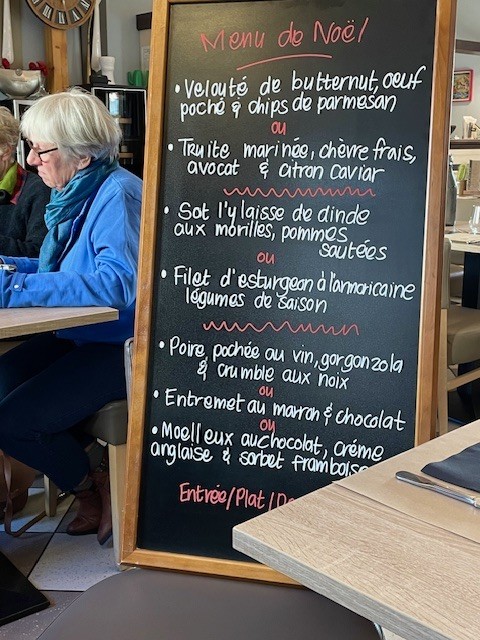 Menu de Noël
• Velouté de butternut, oeuf
poché & chips de parmesan
ou
• Truite marinée, chèvre frais,
avocat & citron caviar
• Sot l'y laisse de dinde
aux morilles, pommes
sautées
ou
• Filet d'esturgeon à l'armoricaine
légumes de saison
• Poire pochée au vin, gorgonzola
& crumble aux noix
ou
• Entremet au marron & chocolat
ou
• Moelleux au chocolat, crème
anglaise & sorbet framboise
Entrée/Plat/De